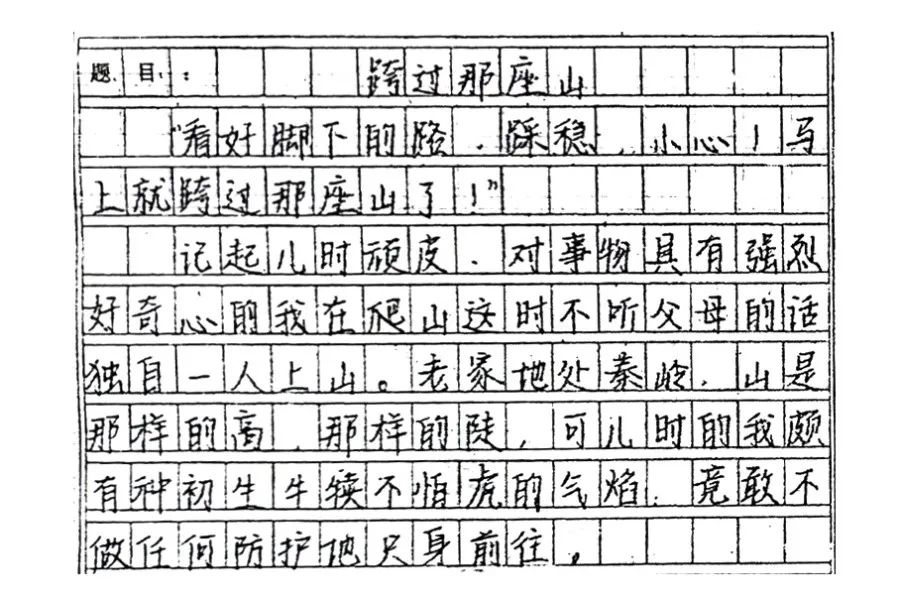 题目：跨过那座山
“看好脚下的路，踩稳，小心！马
上就跨过那座山了！”
记起儿时顽皮，对事物具有强烈
好奇心的我在爬山这时不听父母的话
独自一人上山。老家地处秦岭，山是
那样的高，那样的陡，可儿时的我颇
有种初生牛犊不怕虎的气焰，竟敢不
做任何防护地只身前往，